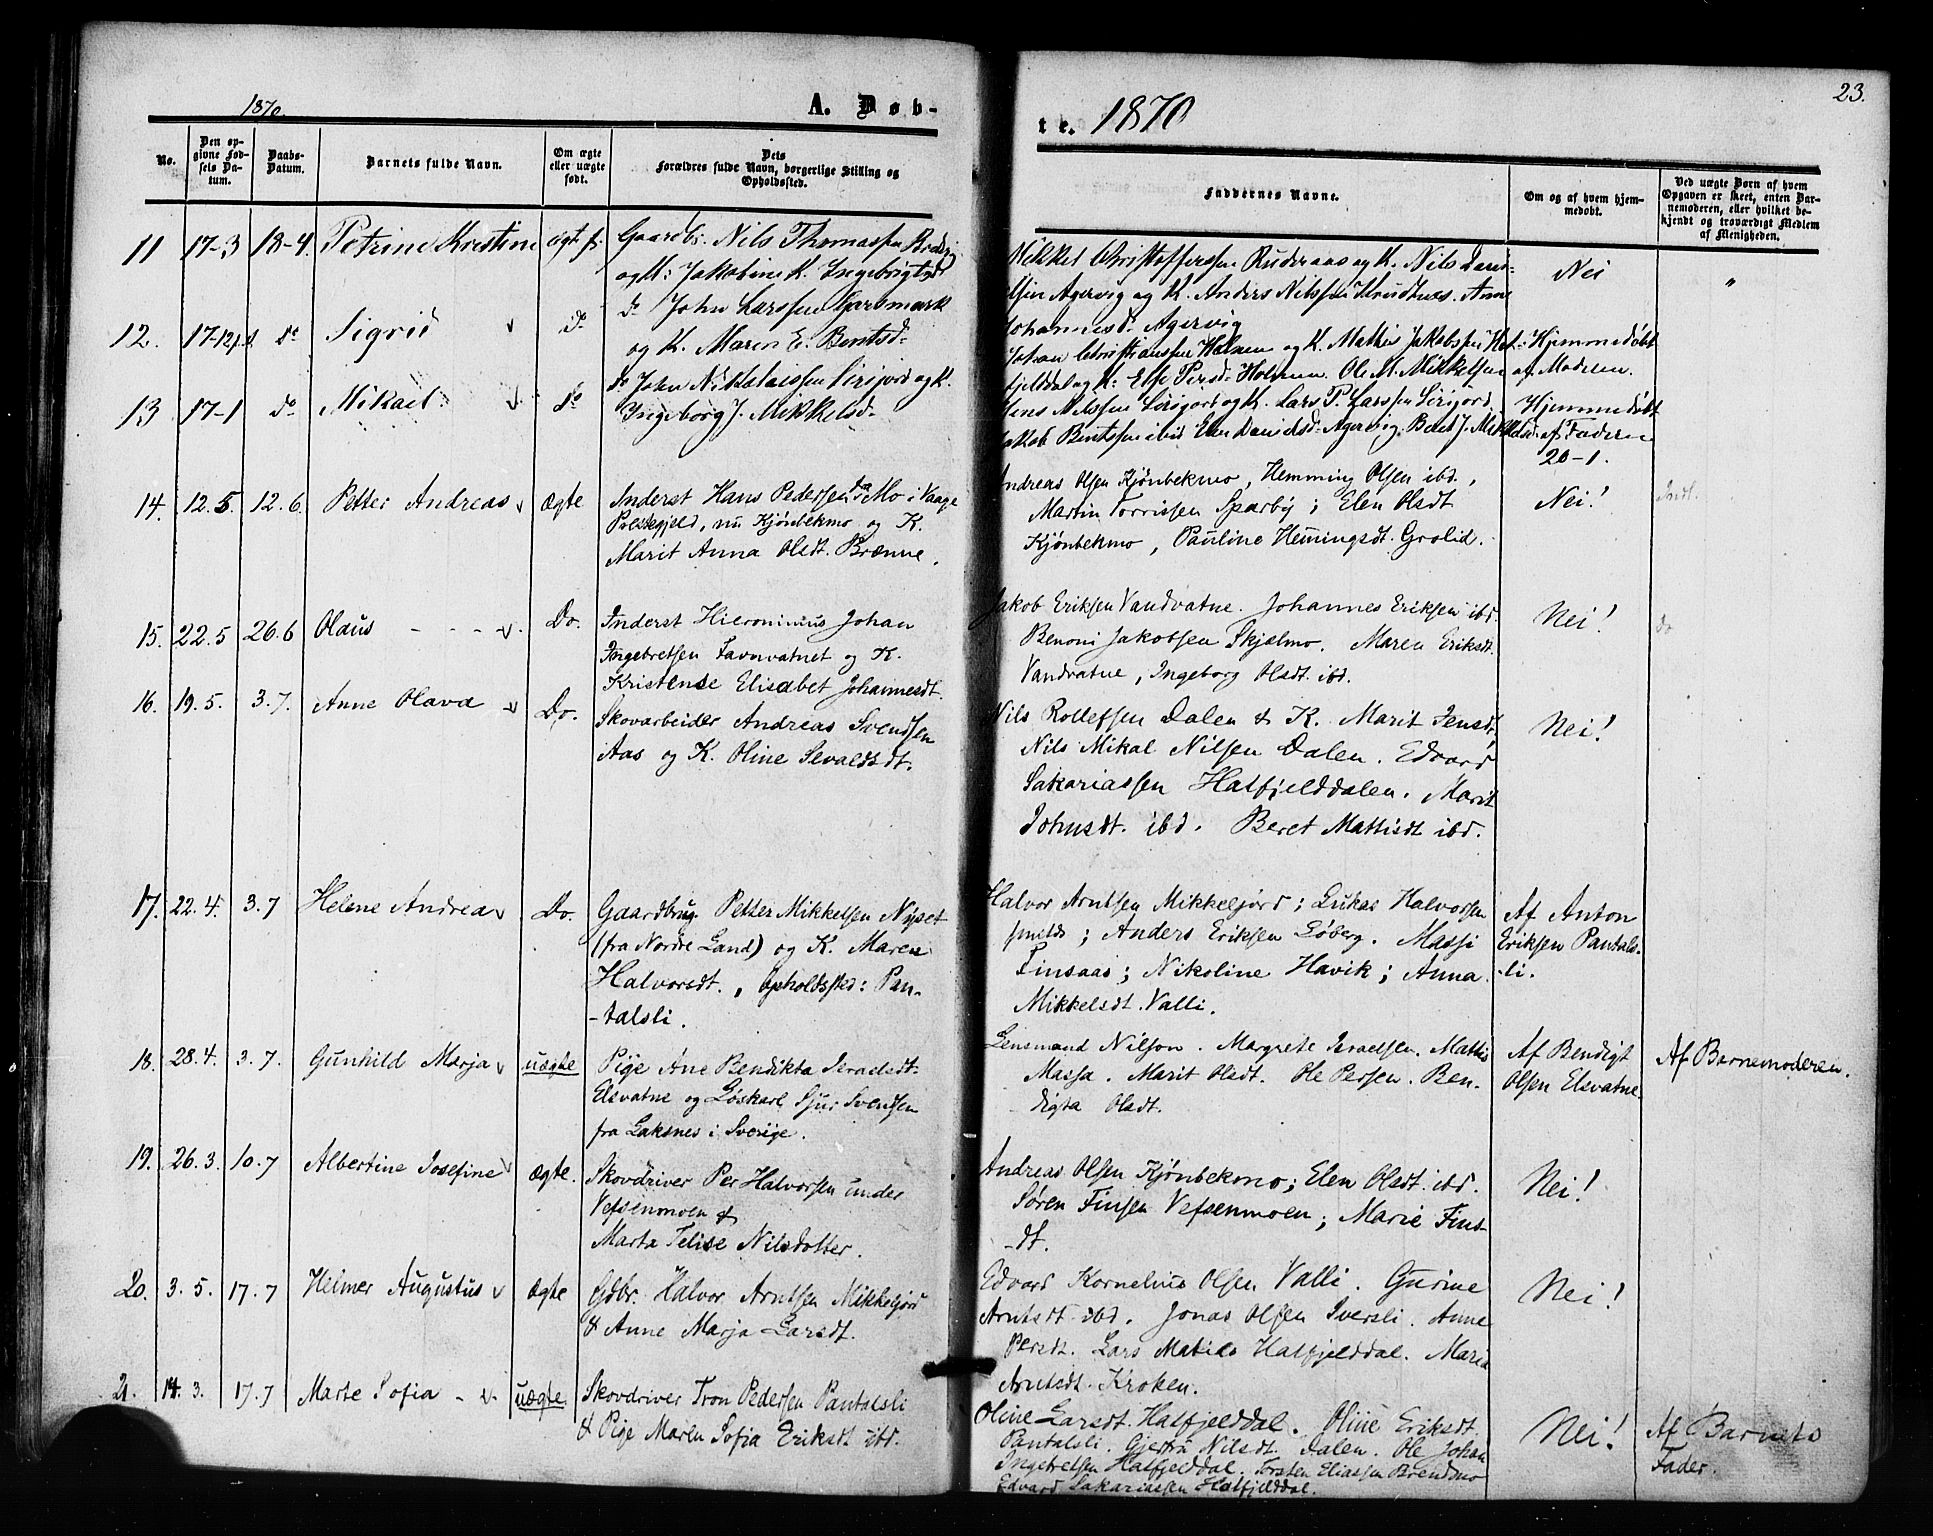 1870.
A. Døb-
No.
Den op-
givne Fød-
sels Da-
tum.
Daabs-
Datum.
Barnets fulde Navn.
Om ægte
eller uægte
født.
Dets
Forældres fulde Navn, borgerlige Stilling og
Opholdssted.
11 17-3 18-4. Petrine Kristine ægte f. Gaardbr. Nils Thomassen
og K: Jakobine K. Ingebrigtsd
12. 17-12 do Sigrid do do John Larssen
og K. Maren E. Bentsd-
13 17-1 do Mikael. do do John Nikolaissen Sirijord og K.
Ingeborg J. Mikkelsd-
14. 12.5 12.6. Petter Andreas ægte Inderst Hans Pedersen Mo i Vaage
Præstegjeld, nu Kjønbekmo og K.
Marit Anna Olsdt. Brænne.
15. 22.5 26.6 Olaus - - - Do. Inderst Hieronimus Johan
Ingebretsen Favnvatnet og K.
Kristense Elisabet Johannesdt.
16. 19.5. 3.7. Anne Olava Do. Skovarbeider Andreas Svendsen
Aas og K. Oline Sevaldsdt.
17. 22.4. 3.7 Helene Andrea Do. Gaardbrug. Petter Mikkelsen Nyset
(fra Nordre Land) og K. Maren
Halvorsdt., Opholdssted: Pan-
-talsli.
18. 28.4. 3.7. Gunhild Marja uægte Pige Ane Bendikta Israelsdt.
Elsvatne og Løskarl Sjur Svendsen
fra Laksnes i Sverige.
19. 26.3. 10.7 Albertine Josefine ægte. Skovdriver Per Halvorsen under
Vefsenmoen &
Marta Felise Nilsdotter.
20. 3.5. 17.7 Helmer Augustus ægte Gdbr. Halvor Arntsen Mikkeljord
& Anne Marja Larsdt.
21. 14.3. 17.7 Marte Sofia - uægte. Skovdriver Tron Pedersen Pantalsli
& Pige Maren Sofia Eriksdt ibd.
23.
te. 1870
Faddernes Navne.
Om og af hvem hjem-
medøbt.
Ved uægte Børn af hvem
Opgaven er skeet, enten Bar-
nemoderen, eller hvilket be-
kjendt og troværdigt Medlem
af Menigheden.
Mikkel Christoffersen Ruderaas og K. Nils
Agervig og K. Anders Nilssen Anne Nei "
Johannesd. Agervig
Johan Christianssen Holmen og K. Mathis Jakobssen Hat- Hjemmedøbt
fjelddal og K: Else Persd- Holmen. Ole M. Mikkelsen af Moderen.
Jens Nilssen Sirijord og K. Lars P. Larssen Sirijord. Hjemmedøbt
Jakob Bentssen ibid Elen Danielsd- Agervig. Beret J. Mikkelsd- af Faderen
20-1.
Andreas Olsen Kjønbekmo, Hemming Olsen ibd.,
Martin Torrissen Sparby; Elen Olsdt Nei!
Kjønbekmo, Pauline Hemingsdt. Grolid.
Jakob Eriksen Vandvatne. Johannes Eriksen ibd. Nei!
Benoni Jakobsen Skjælmo. Maren Eriksdt. do
Vandvatne, Ingeborg Olsdt. ibd.
Nils Rollefsen Dalen & K. Marit Jensdt, Nei!
Nils Mikal Nilsen Dalen. Edvard
Sakariassen Hatfjelddalen. Marit
Johnsdt. ibd. Beret Mattisdt ibd.
Halvor Arntsen Mikkeljord; Lukas Halvorsen Af Anton
smlds; Anders Eriksen Løberg. Massi Eriksen Pantals-
Finsaas; Nikoline Havik; Anna -li.
Mikkelsdt. Valli.
Lensmand Nilson. Margrete Israelsen. Mattis Af Bendigt Af Barnemoderen.
Massa. Marit Olsdt. Ole Persen. Ben- Olsen Elsvatne.
digta Olsdt.
Andreas Olsen Kjønbekmo; Elen Olsdt. ibd. Nei!
Søren Finsen Vefsenmoen; Marie Fins-
-dt.
Edvard Kornelius Olsen Valli. Gurine Nei!
Arntsdt ibd. Jonas Olsen Iversli. Anne
Persdt. Lars Matias Hatfjelddal. Maria
Arntsdt. Kroken.
Oline Larsdt. Hatfjelddal. Oline Eriksdt. Nei! Af Barnets
Pantalsli. Gjertru Nilsdt. Dalen. Ole Johan Fader.
Ingebretsen Hatfjelddal. Torsten Eliassen Brendmo
Edvard Sakariassen Hatfjelddal.